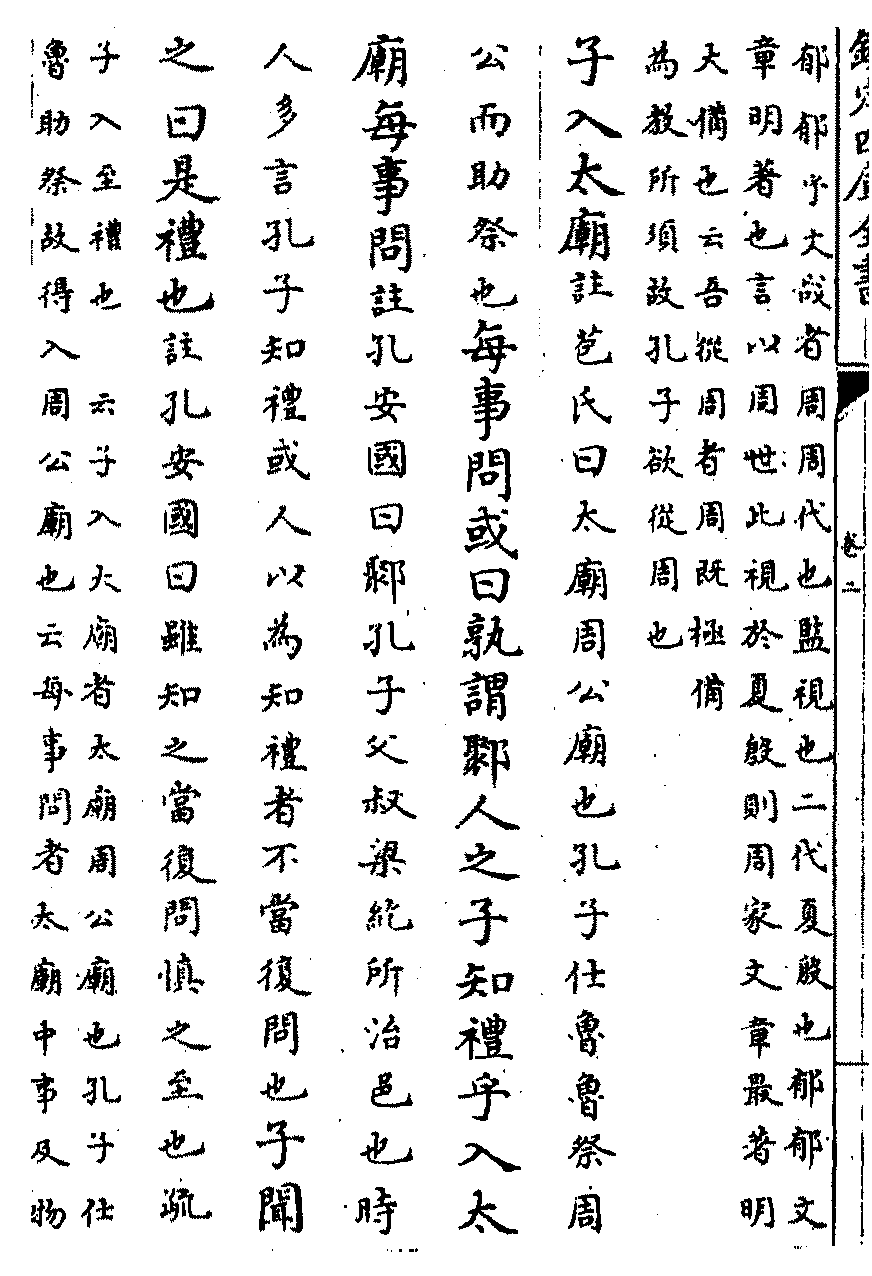 欽定四庫全書
卷二
郁郁乎文哉者周周代也監視也二代夏殷也郁郁文
章明著也言以周世此視於夏殷則周家文章最著明
大備也云吾從周者周既極備
為教所須故孔子欲從周也
子入太廟註苞氏曰太廟周公廟也孔子仕魯魯祭周
公而助祭也每事問或曰孰謂鄹人之子知禮乎入太
廟每事問註孔安國曰鄹孔子父叔梁紇所治邑也時
人多言孔子知禮或人以為知禮者不當復問也子聞
之曰是禮也註孔安國曰雖知之當復問慎之至也疏
子入至禮也 云子入大廟者太廟周公廟也孔子仕
魯助祭故得入周公廟也云每事問者太廟中事及物